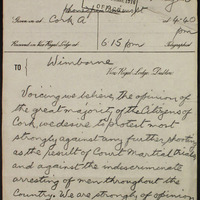 Handed in at
Cork A
at 4.40 pm
Received in Vice Regal Lodge at 6.15 pm
TO Wimborne
Vice Regal Lodge, Dublin
Voicing as we believe the opinion of
the great majority of the Citizens of
Cork, we desire to protest most
strongly against any further shooting
as the result of Court Martial trials
and against the indiscriminate
arresting of men throughout the
Country. We are strongly of opinion